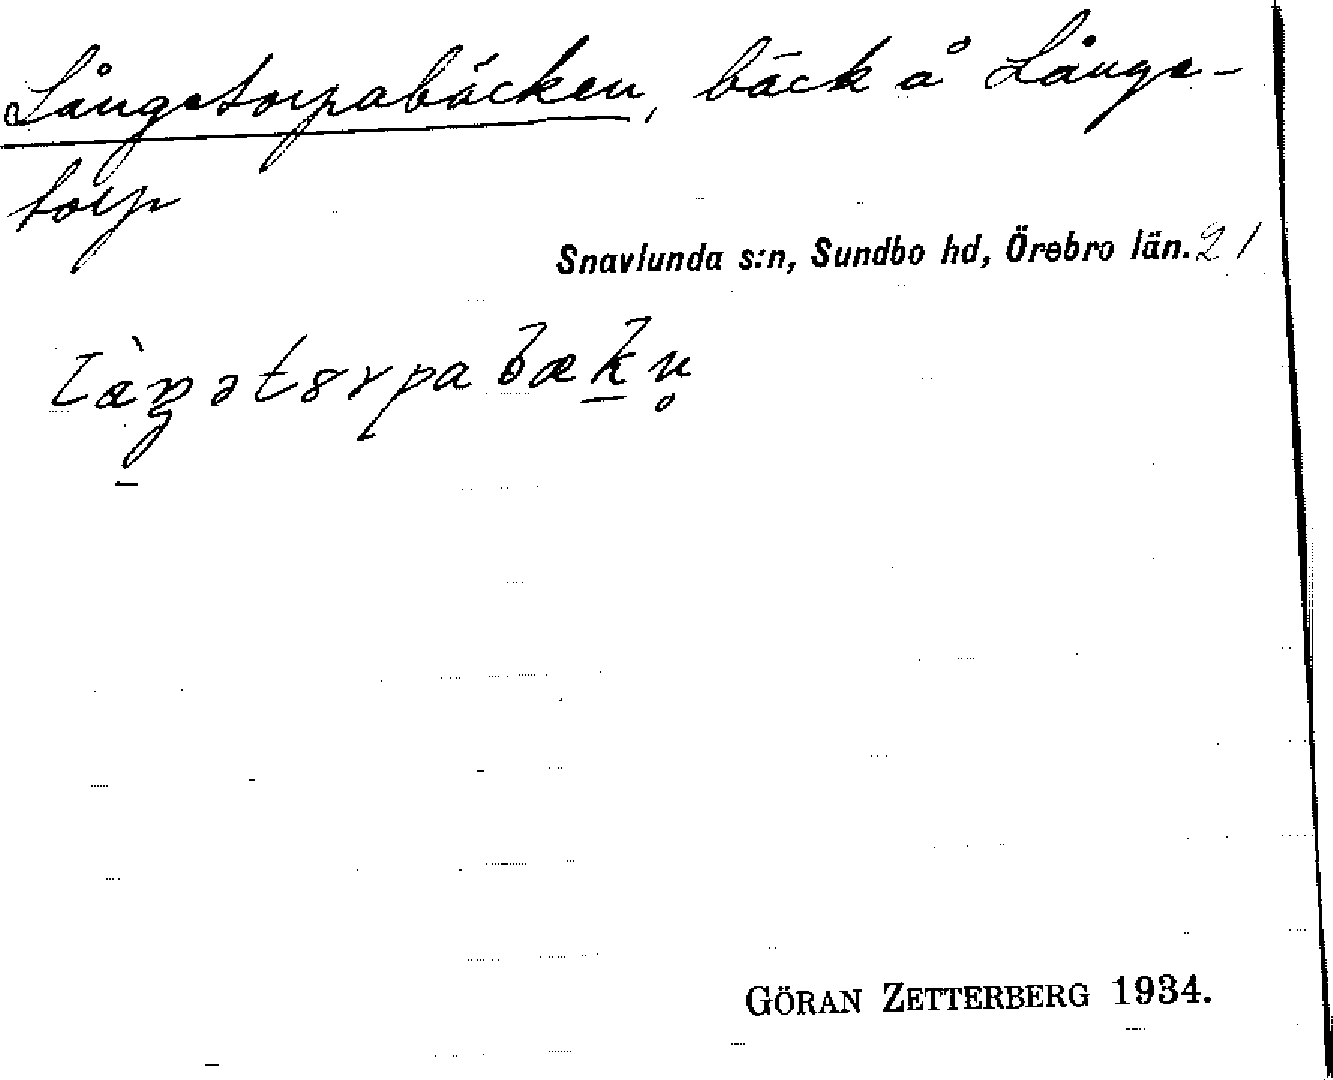 Långetorpabäcken, bäck å Långe-
torp
Snavlunda s:n, Sundbo hd, Örebro län. 21
GÖRAN ZETTERBERG 1934.